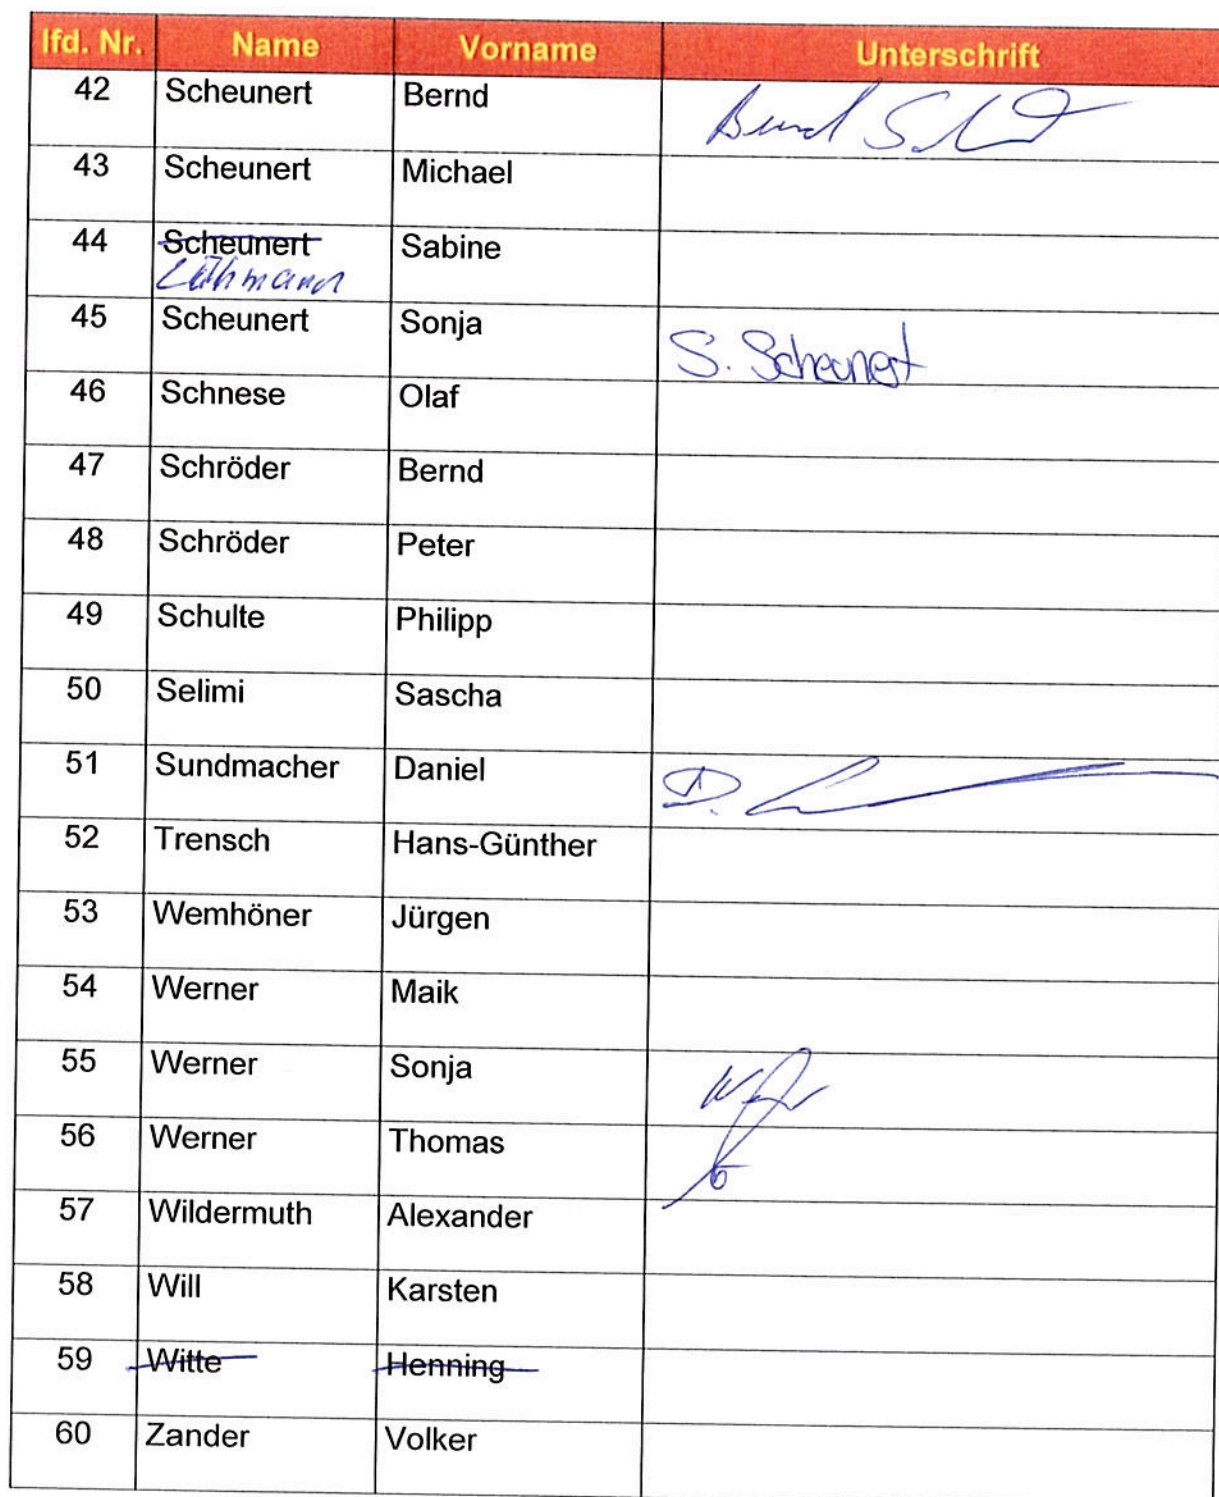 lfd. Nr. Name Vorname Unterschrift
42 Scheunert Bernd Bernd
43 Scheunert Michael
44 Scheunert Sabine
45 Scheunert Sonja S. Scheunert
46 Schnese Olaf
47 Schröder Bernd
48 Schröder Peter
49 Schulte Philipp
50 Selimi Sascha
51 Sundmacher Daniel D.
52 Trensch Hans-Günther
53 Wemhöner Jürgen
54 Werner Maik
55 Werner Sonja
56 Werner Thomas
57 Wildermuth Alexander
58 Will Karsten
59 Witte Henning
60 Zander Volker